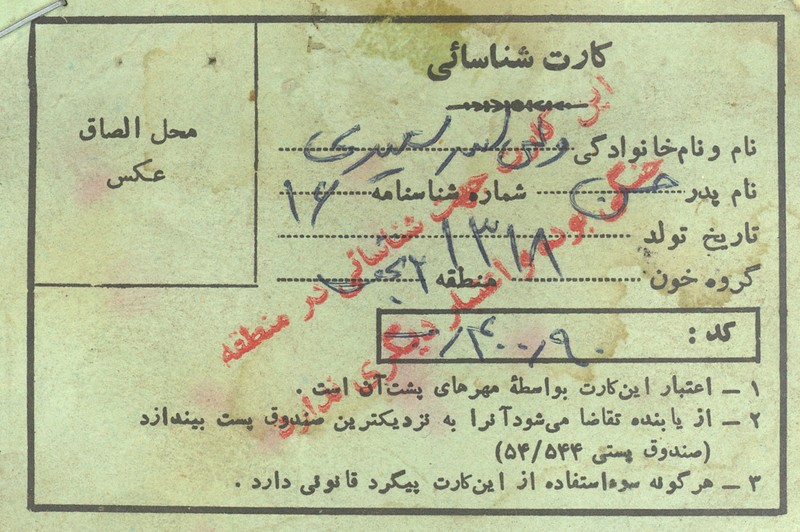 کارت شناسائی
محل الصاق
عکس
نام و نام خانوادگی سعیدی
نام پدر حسن شماره شناسنامه ۱۶
تاریخ تولد ۱۳۱۸
گروه خون منطقه ۲
کد : ۴۰۰/۹۰/
این کارت جهت شناسائی در منطقه
جنگی بوده و اعتبار دیگری ندارد
۱ ـ اعتبار این کارت بواسطهٔ مهرهای پشت آن است .
۲ ـ از یابنده تقاضا می‌شود آنرا به نزدیکترین صندوق پست بیندازد
(صندوق پستی ۵۴/۵۴۴)
۳ ـ هرگونه سوء استفاده از این کارت پیگرد قانونی دارد .